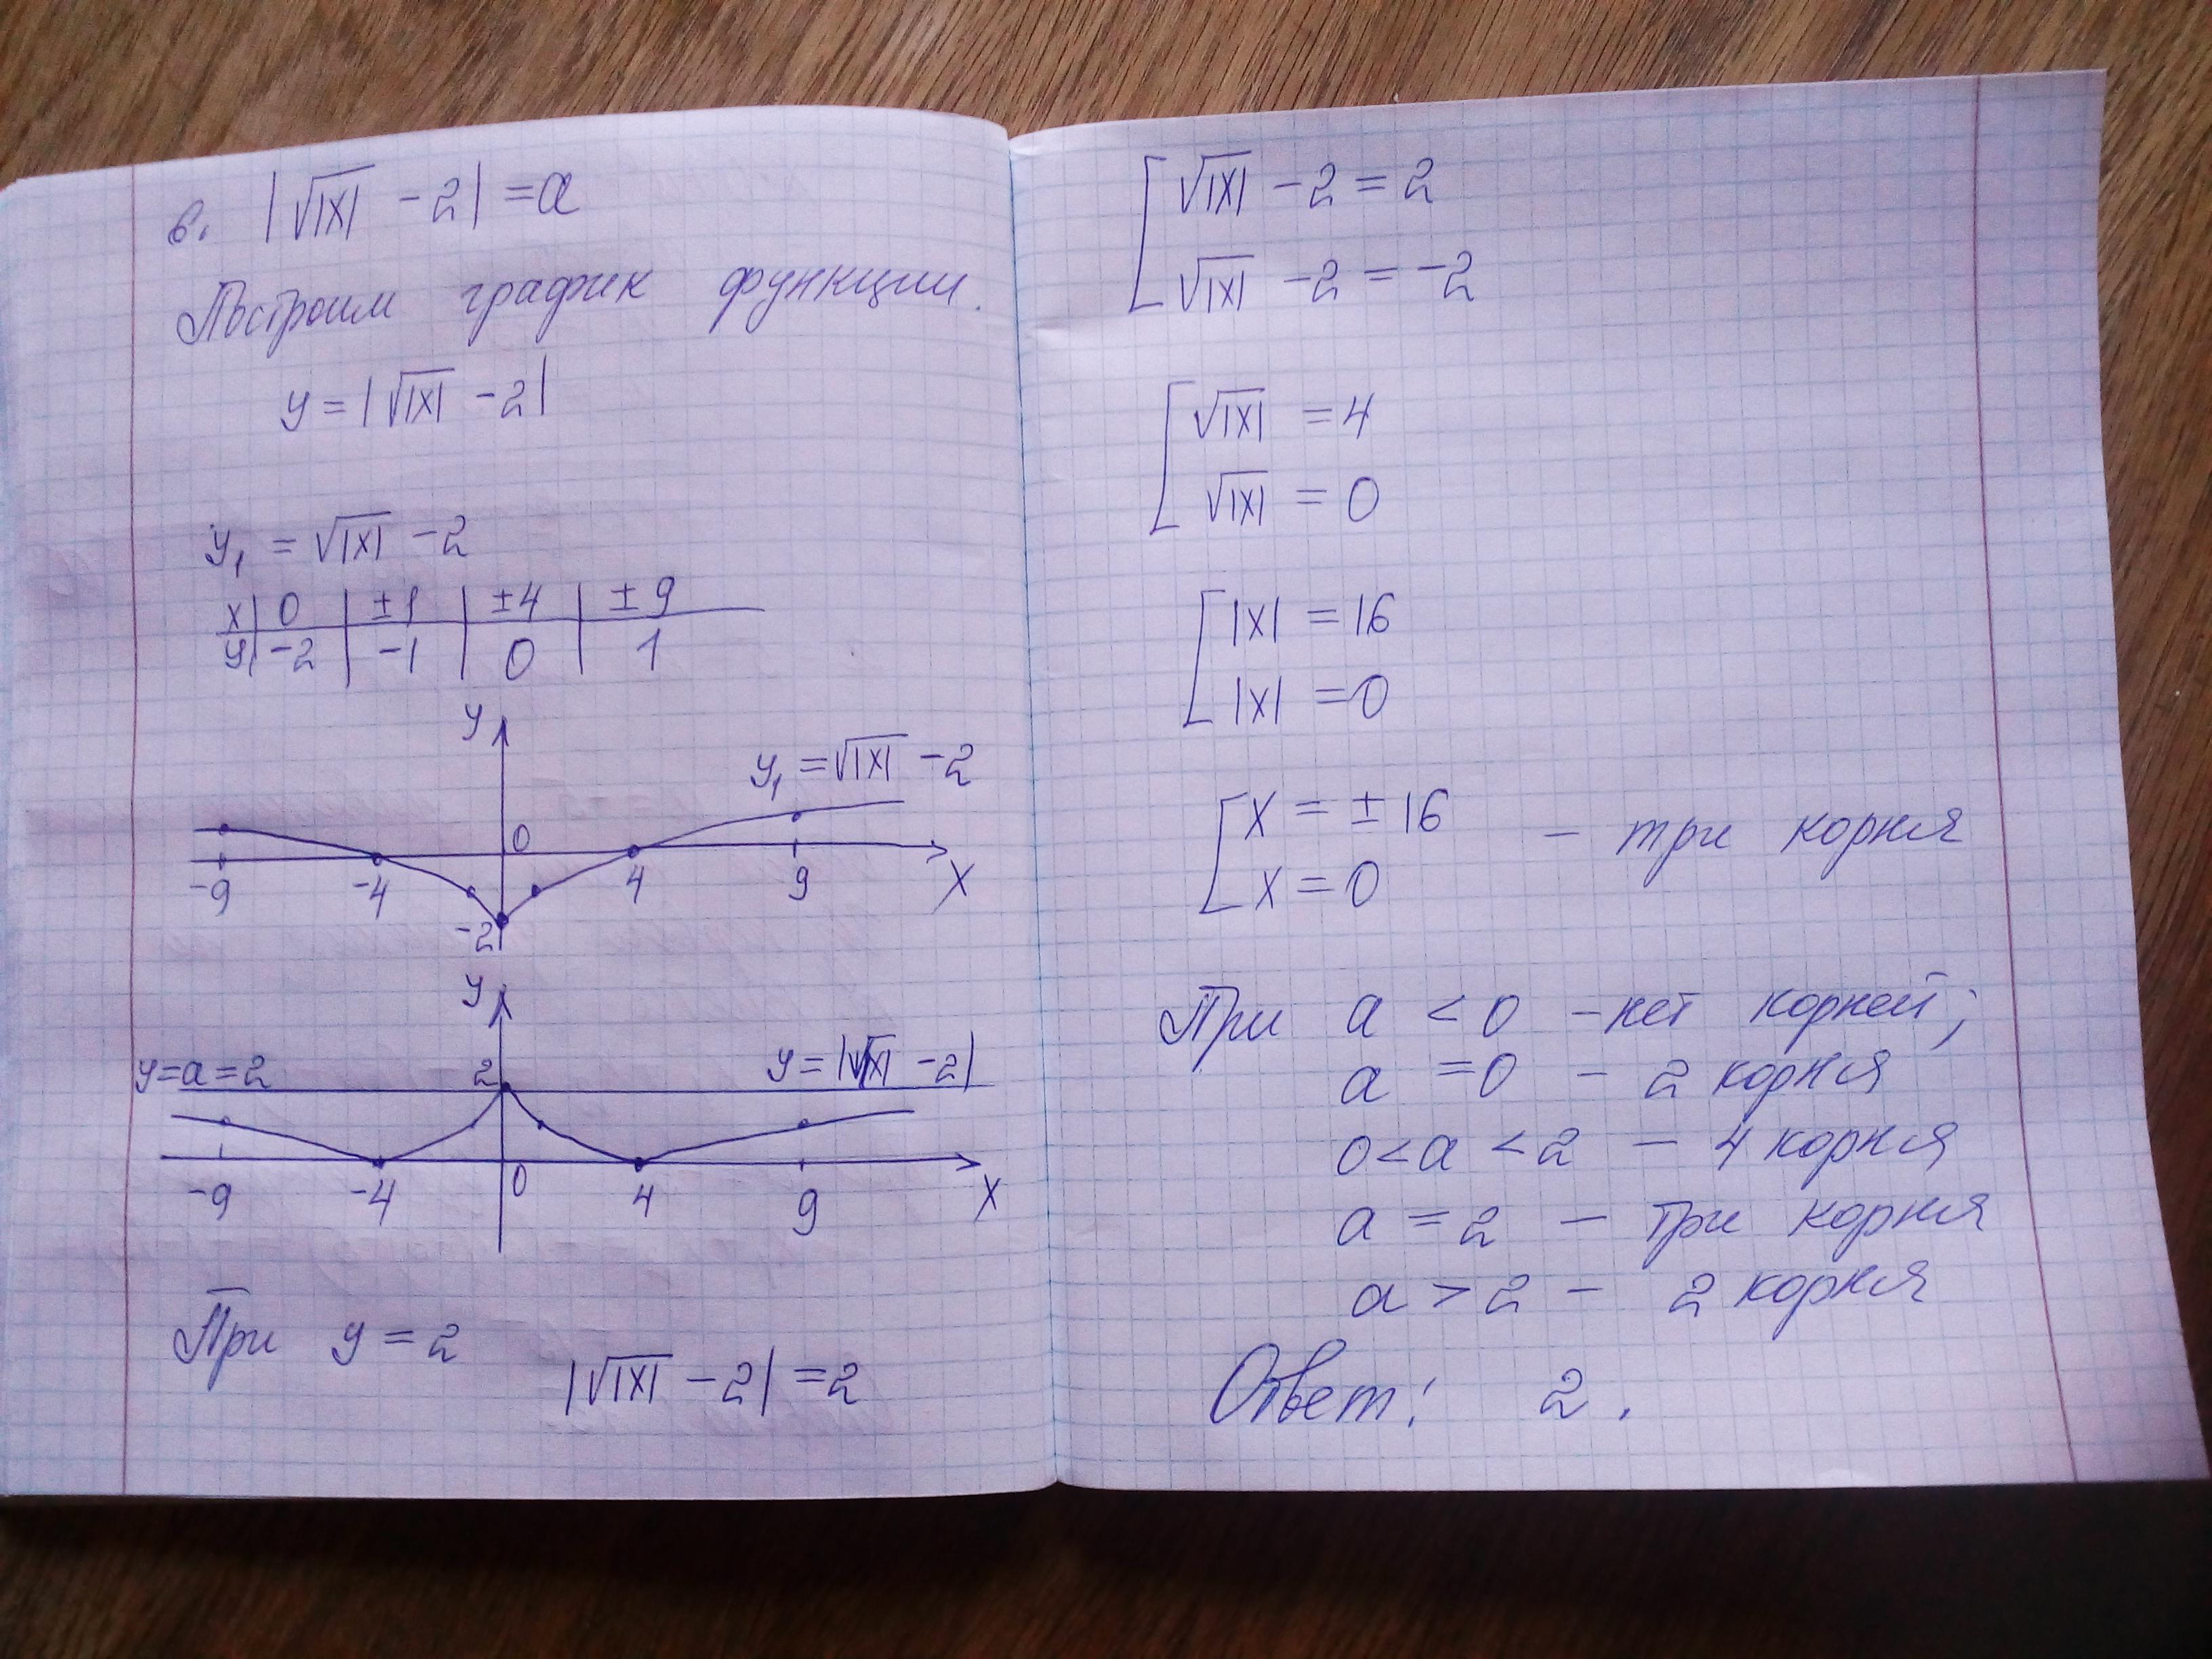 в. |√|x| - 2| = a
Построим график функции.
y = |√|x| - 2|
y₁ = √|x| - 2
x | 0 | ±1 | ±4 | ±9
y | -2 | -1 | 0 | 1
y
y₁ = √|x| - 2
0
-9 -4 4 9 x
-2
y
y = a = 2 2 y = |√|x| - 2|
-9 -4 0 4 9 x
При y = 2
|√|x| - 2| = 2
[ √|x| - 2 = 2
√|x| - 2 = -2
[ √|x| = 4
√|x| = 0
[ |x| = 16
|x| = 0
[ x = ±16 - три корня
x = 0
При a < 0 - нет корней;
a = 0 - 2 корня
0 < a < 2 - 4 корня
a = 2 - три корня
a > 2 - 2 корня
Ответ: 2.